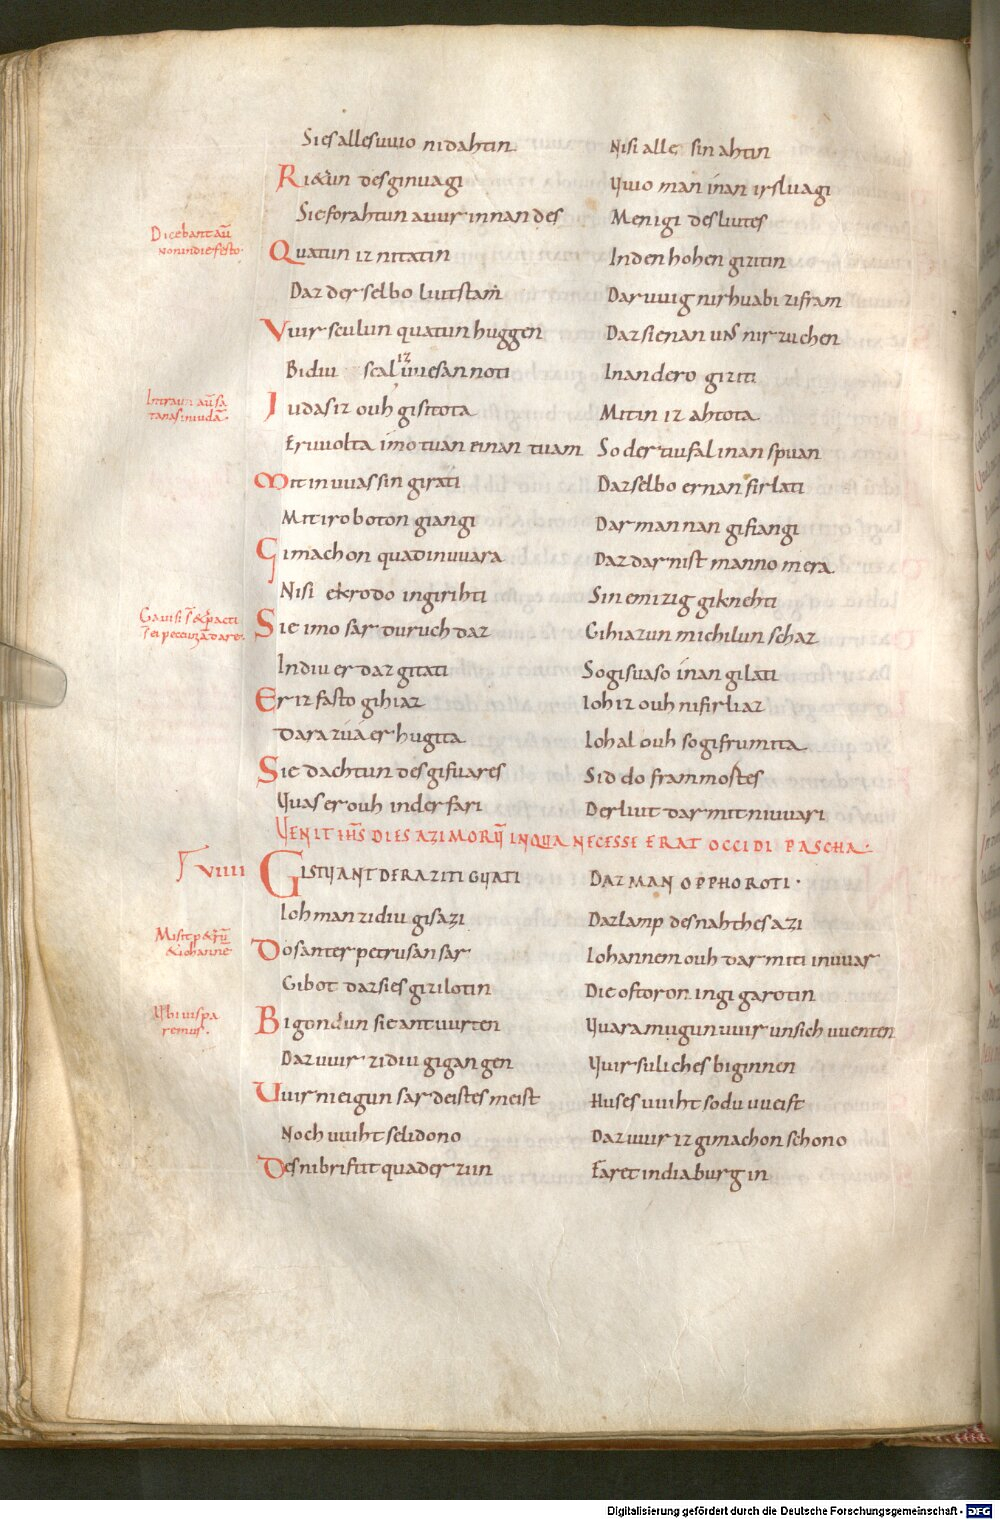 Sies alles uuio ni dahtin Nisi alle sin ahtin
Rietun des ginuagi Vuio man ínan irsluagi
Sie forahtun auur innan des Menigi des liutes
Dicebant aū
non in die festo
Quatun iz ni tatin In den hohen gizitin
Daz der selbo liutstam Dar uuig nirhuabi zi fram
Vuir sculun quatun huggen Daz sie nan uns nirzuchen
Bidiu scal iz uuesan noti In andero giziti
Intrauit aū sa
tanas in iudā
Iudas iz ouh gistota Mit in iz ahtota
Er uuolta imo tuan einan tuam So der tiufal inan spuan
Mit in uuas sin girati Daz selbo er nan firlati
Mit iro boton giangi Dar man nan gifiangi
Gimachon quad in uuara Daz dar nist manno mera
Nisi ekrodo in girihti Sin emizig giknehti
Gauisi s̄ & pacti
s̄ ei pecuniā dare
Sie imo sar duruch daz Gihiazun michilun schaz
Indiu er daz gitati So gisuaso ínan gilati
Er iz fasto gihiaz Ioh iz ouh ni firliaz
Dara zúa er hugita Ioh al ouh so gifrumita
Sie dachtun des gifuares Sid do frammostes
Vuas er ouh in der fari Der liut dar mit ni uuari
VENIT IHS DIES AZIMORŪ IN QUA NECESSE ERAT OCCIDI PASCHA
VIIII GISTUANT DERA ZITI GUATI DAZ MAN OPPHOROTI
Ioh man zi diu gisazi Daz lamp des nahthes azi
Misit petrū
& iohannē
Do santer petrusan sar Iohannem ouh dar miti in uuar
Gibot daz sies gizilotin Die ostoron in gigarotin
Vbi uis pa
remus
Bigondun sie antuurten Vuara mugun uuir unsih uuenten
Daz uuir zi diu gigangen Vuir suliches biginnen
Vuir nieigun sar deistes meist Huses uuiht so du uueist
Noch uuiht selidono Daz uuir iz gimachon schono
Des nibristit quad er ziu Faret in dia burg in
Digitalisierung gefördert durch die Deutsche Forschungsgemeinschaft - DFG